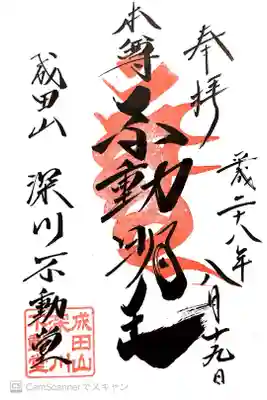 奉拝
平成二十八年八月十九日
本尊
不動明王
成田山
深川不動堂
成田山
深川
不動堂
CamScannerでスキャン